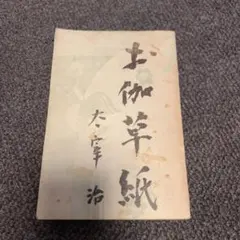 お伽草紙
太宰治